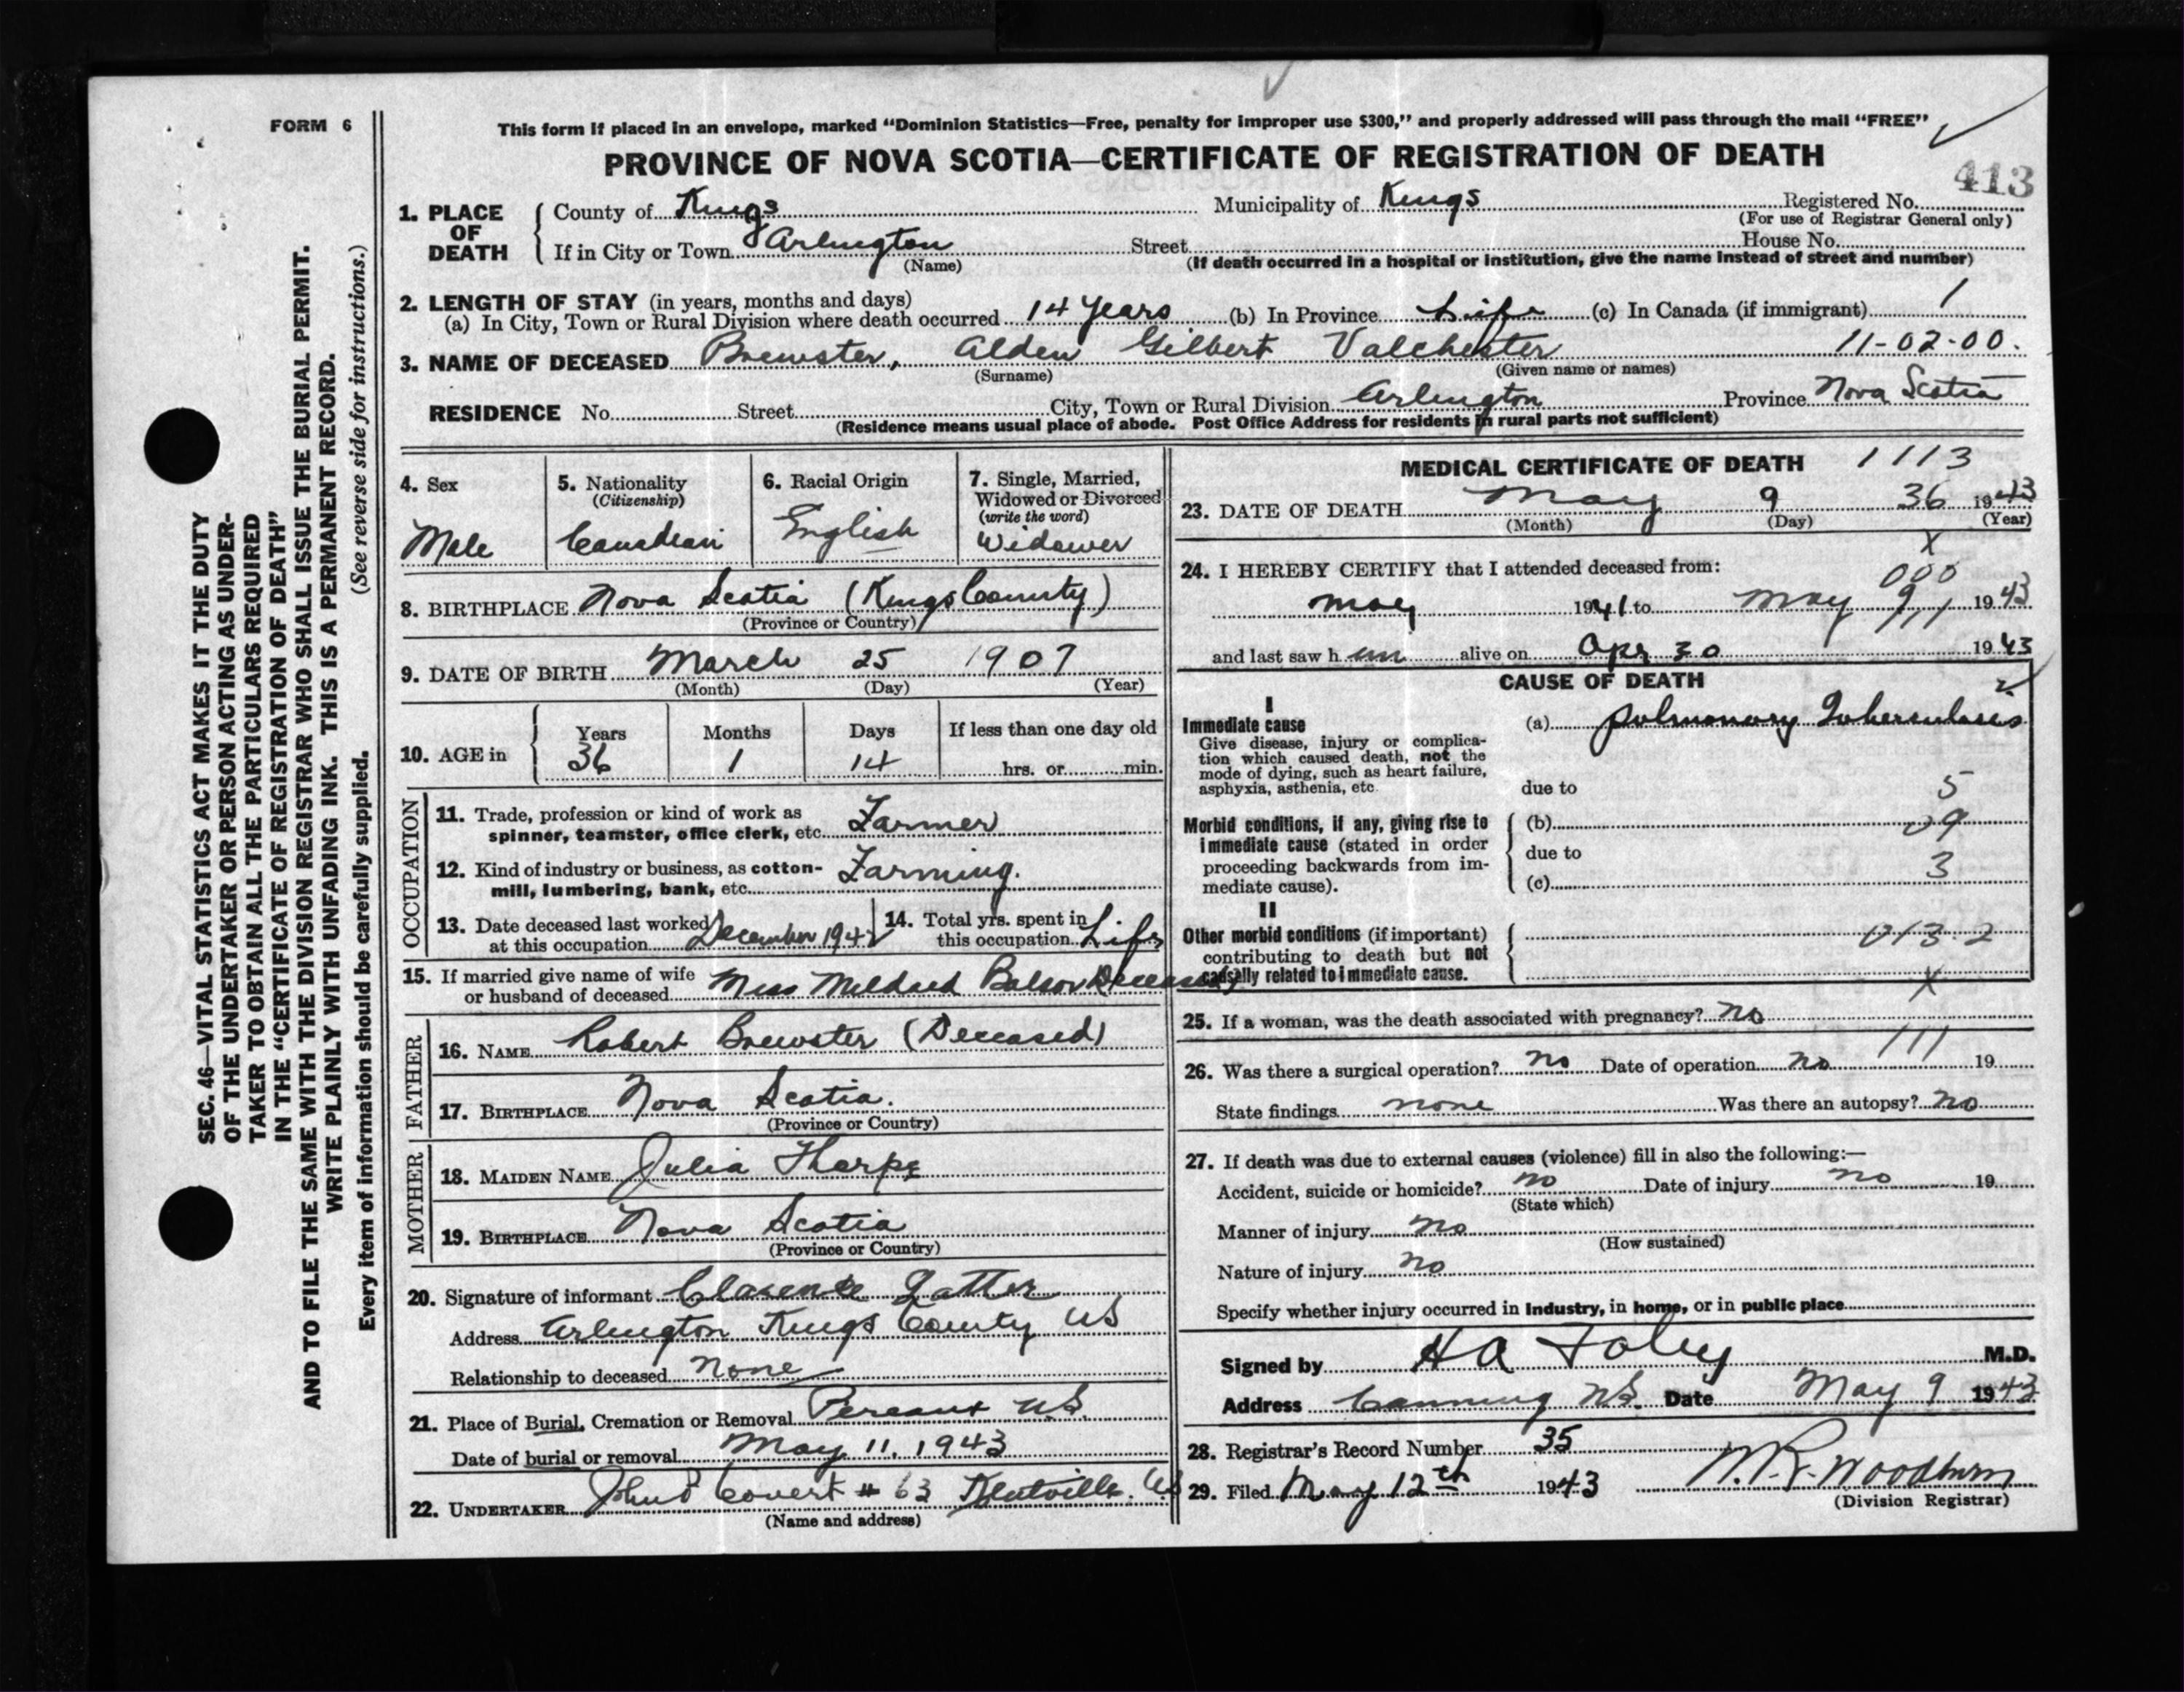 FORM 6
This form if placed in an envelope, marked “Dominion Statistics—Free, penalty for improper use $300,” and properly addressed will pass through the mail “FREE”
PROVINCE OF NOVA SCOTIA—CERTIFICATE OF REGISTRATION OF DEATH
413
1. PLACE OF DEATH County of Kings Municipality of Kings Registered No.
(For use of Registrar General only)
If in City or Town Arlington Street House No.
(Name) (If death occurred in a hospital or institution, give the name instead of street and number)
2. LENGTH OF STAY (in years, months and days)
(a) In City, Town or Rural Division where death occurred 14 Years (b) In Province Life (c) In Canada (if immigrant) 1
3. NAME OF DECEASED Brewster, Alden Gilbert Valchester 11-02-00.
(Surname) (Given name or names)
RESIDENCE No. Street City, Town or Rural Division Arlington Province Nova Scotia
(Residence means usual place of abode. Post Office Address for residents in rural parts not sufficient)
4. Sex
Male
5. Nationality
(Citizenship)
Canadian
6. Racial Origin
English
7. Single, Married,
Widowed or Divorced
(write the word)
Widower
8. BIRTHPLACE Nova Scotia (Kings County)
(Province or Country)
9. DATE OF BIRTH March 25 1907
(Month) (Day) (Year)
10. AGE in Years Months Days If less than one day old
36 1 14 hrs. or min.
OCCUPATION
11. Trade, profession or kind of work as
spinner, teamster, office clerk, etc. Farmer
12. Kind of industry or business, as cotton-
mill, lumbering, bank, etc. Farming.
13. Date deceased last worked
at this occupation December 1942
14. Total yrs. spent in
this occupation Life
15. If married give name of wife
or husband of deceased Miss Mildred Deceased)
FATHER
16. NAME Robert Brewster (Deceased)
17. BIRTHPLACE Nova Scotia.
(Province or Country)
MOTHER
18. MAIDEN NAME Julia Tharpe
19. BIRTHPLACE Nova Scotia
(Province or Country)
20. Signature of informant Clarence
Address Arlington Kings County NS
Relationship to deceased None
21. Place of Burial, Cremation or Removal Pereaux N.S.
Date of burial or removal May 11, 1943
22. UNDERTAKER John Covert # 63 Kentville. NS
(Name and address)
MEDICAL CERTIFICATE OF DEATH 1113
23. DATE OF DEATH May 9 36 1943
(Month) (Day) (Year)
X
24. I HEREBY CERTIFY that I attended deceased from:
000
May 1941 to May 9 1943
111
and last saw h im alive on Apr 30 1943
CAUSE OF DEATH
2
I
Immediate cause
Give disease, injury or complica-
tion which caused death, not the
mode of dying, such as heart failure,
asphyxia, asthenia, etc.
(a) pulmonary Tuberculosis
due to 5
Morbid conditions, if any, giving rise to
immediate cause (stated in order
proceeding backwards from im-
mediate cause).
(b) 09
due to
(c) 3
II
Other morbid conditions (if important)
contributing to death but not
causally related to immediate cause.
013.2
X
25. If a woman, was the death associated with pregnancy? no
26. Was there a surgical operation? no Date of operation no 111 19
State findings none Was there an autopsy? no
27. If death was due to external causes (violence) fill in also the following:—
Accident, suicide or homicide? no Date of injury no 19
(State which)
Manner of injury no
(How sustained)
Nature of injury no
Specify whether injury occurred in Industry, in home, or in public place
Signed by H A Foley M.D.
Address Canning N.S. Date May 9 1943
28. Registrar's Record Number 35
29. Filed May 12th 1943 W.R. Woodburn
(Division Registrar)
SEC. 46—VITAL STATISTICS ACT MAKES IT THE DUTY
OF THE UNDERTAKER OR PERSON ACTING AS UNDER-
TAKER TO OBTAIN ALL THE PARTICULARS REQUIRED
IN THE “CERTIFICATE OF REGISTRATION OF DEATH”
AND TO FILE THE SAME WITH THE DIVISION REGISTRAR WHO SHALL ISSUE THE BURIAL PERMIT.
WRITE PLAINLY WITH UNFADING INK. THIS IS A PERMANENT RECORD.
Every item of information should be carefully supplied. (See reverse side for instructions.)